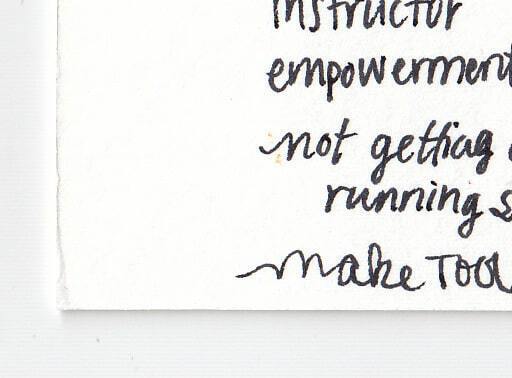 instructor
empowerment
not getting
running s
make Tool